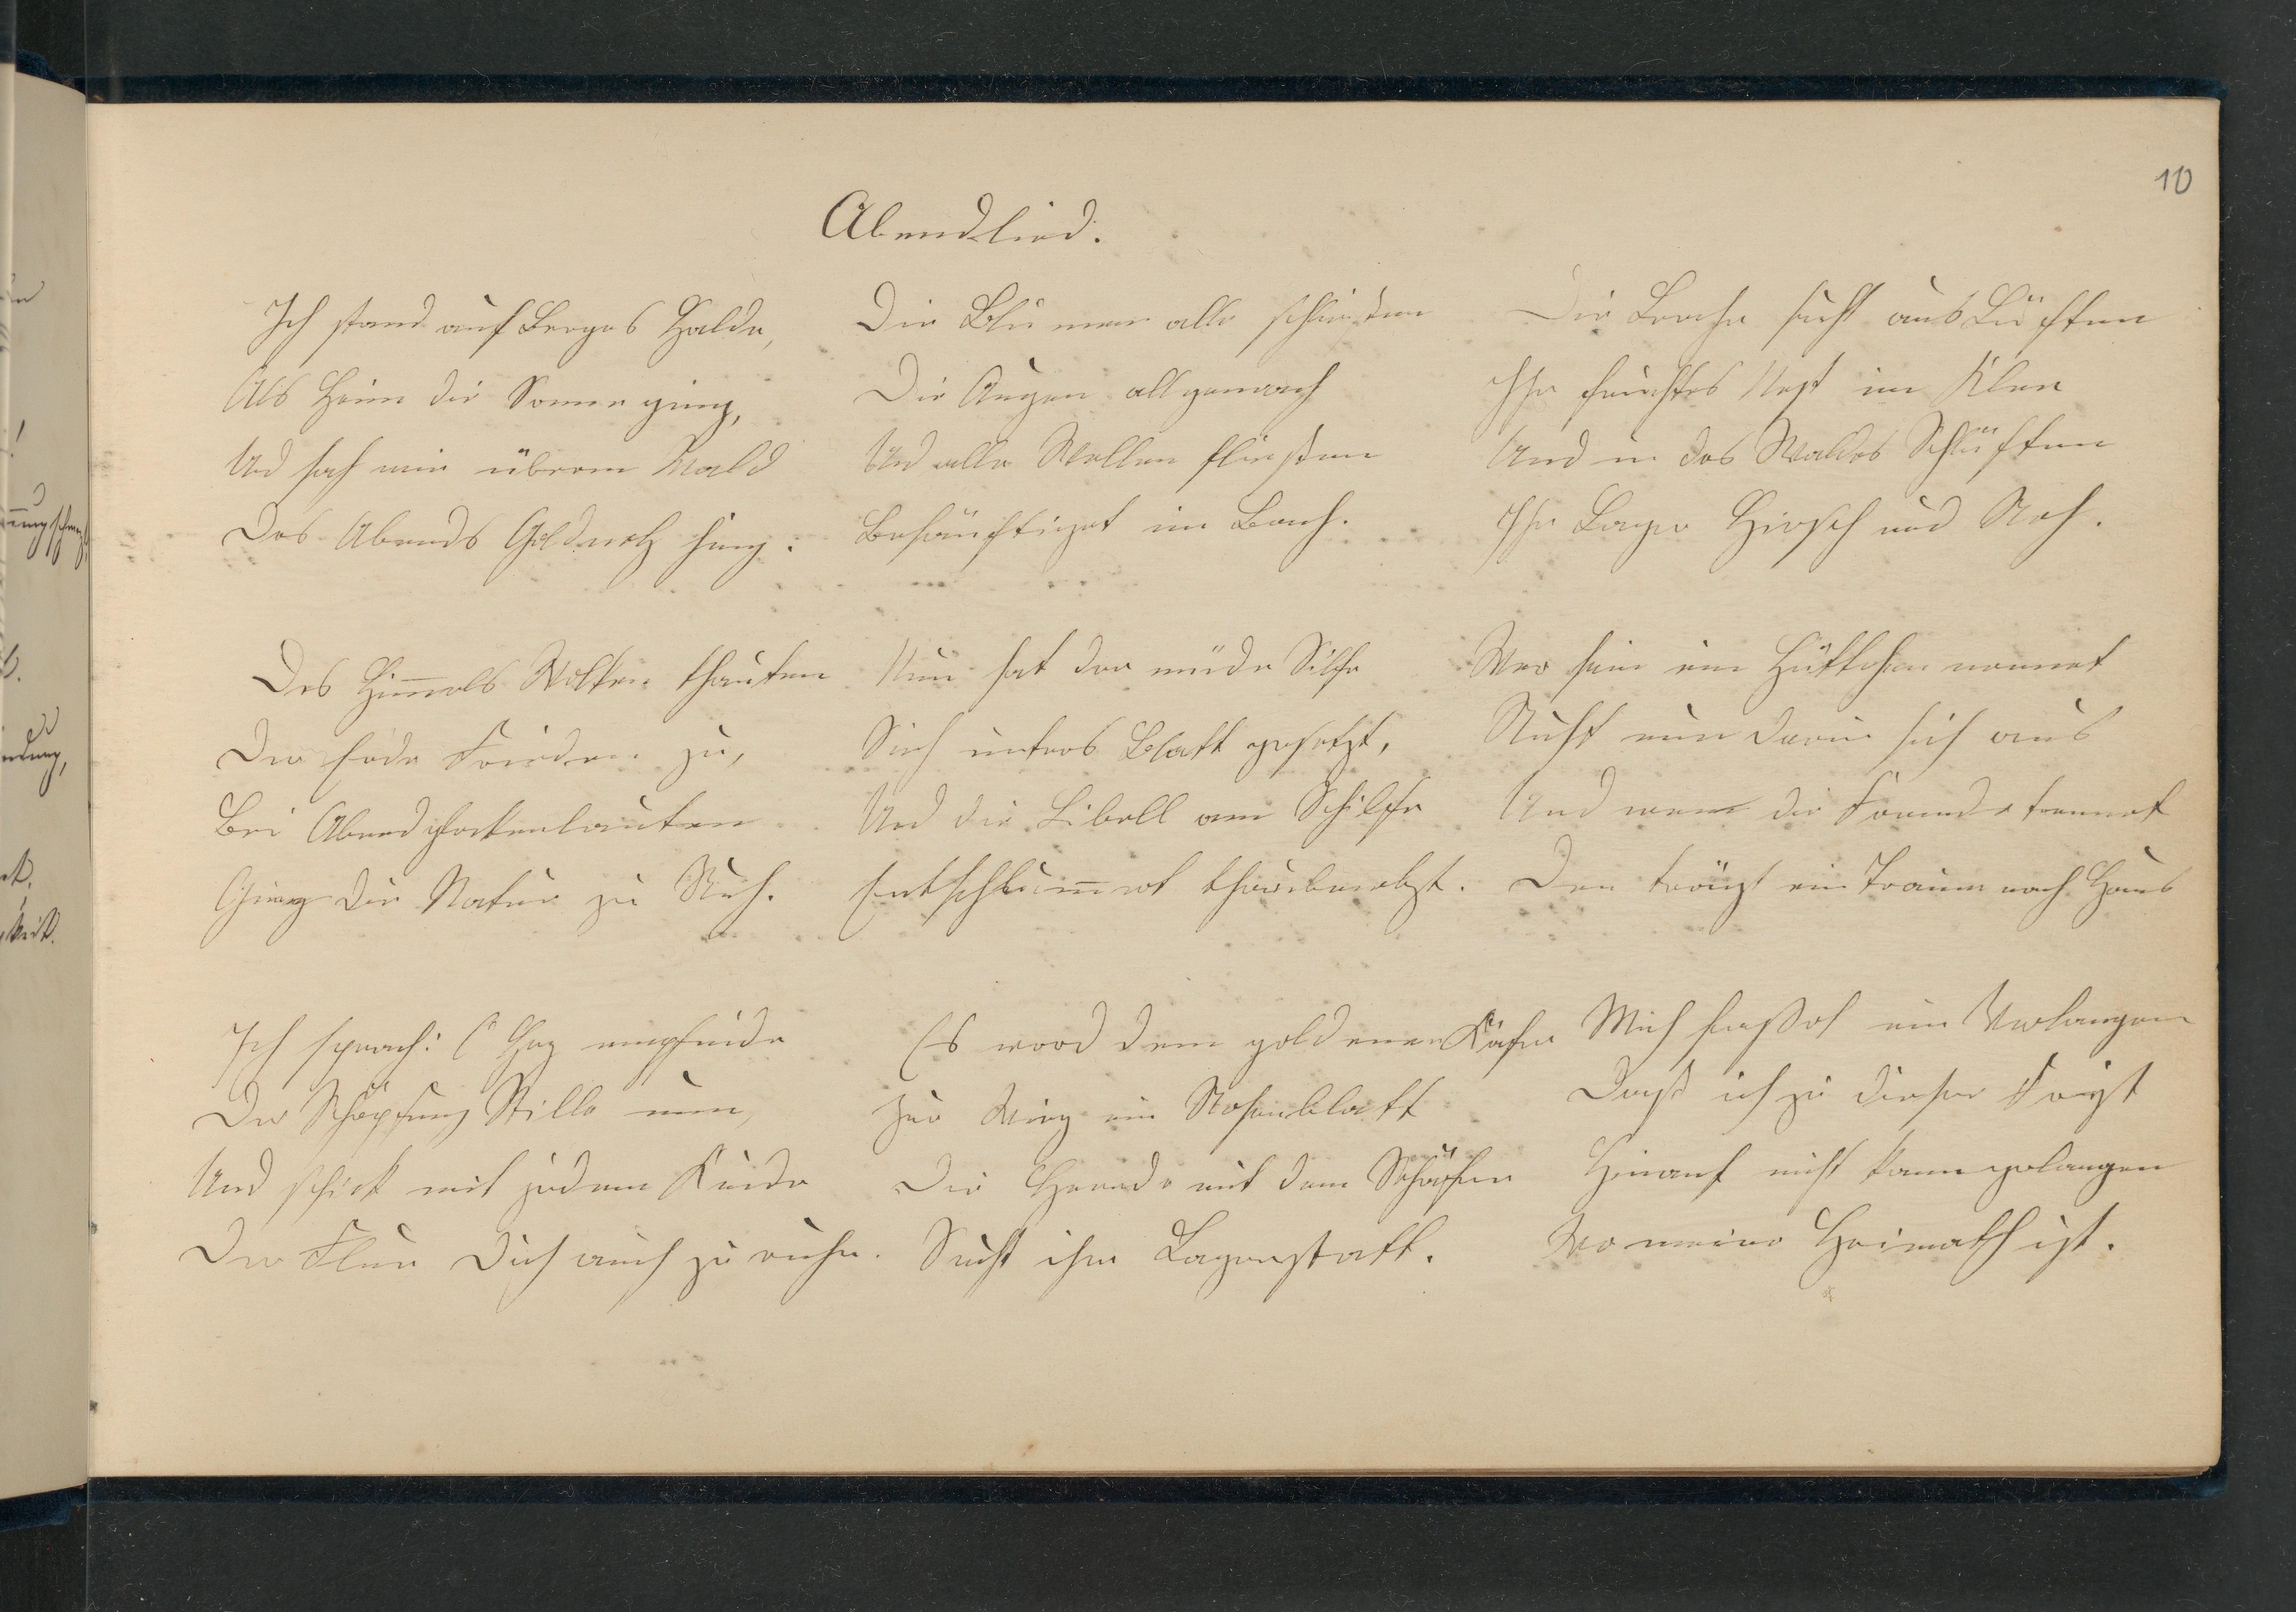 10
Abendlied.
Ich stand auf Berges Halde,
Als Heim die Sonne ging,
Und sah wie überm Wald
Des Abends Goldnetz hing.
Des Him̅els Wolken thauten
Der Erde Frieden zu,
Bei Abendglockenlauten
Ging die Natur zu Ruh.
Ich sprach: O Herz empfinde
Der Schöpfung Stille nun,
Und schick mit jedem Kinde
Der Flur Dich auch zu ruhn.
Die Blumen alle schließen
Die Augen allgemach
Und alle Wellen fließen
Besänftiget im Bach.
Nun hat der müde Silfe
Sich unters Blatt gesetzt,
Und die Libell am Schilfe
Entschlum̅ert thaubenetzt.
Es ward dem goldenen Käfer
Zur Wieg ein Rosenblatt
Die Heerde mit dem Schäfer
Sucht ihre Lagerstatt.
Die Lerche sucht aus Lüften
Ihr feuchtes Nest im Klee
Und in des Waldes Schlüften
Ihr Lager Hirsch und Reh.
Wer sein ein Hüttchen nennet
Ruht nun darin sich aus
Und wem die Fremde trennet
Den trägt ein Traum nach Haus
Mich fasset ein Verlangen
Daß ich zu dieser Frist
Hinauf nicht kann gelangen
Wo meine Heimath ist.